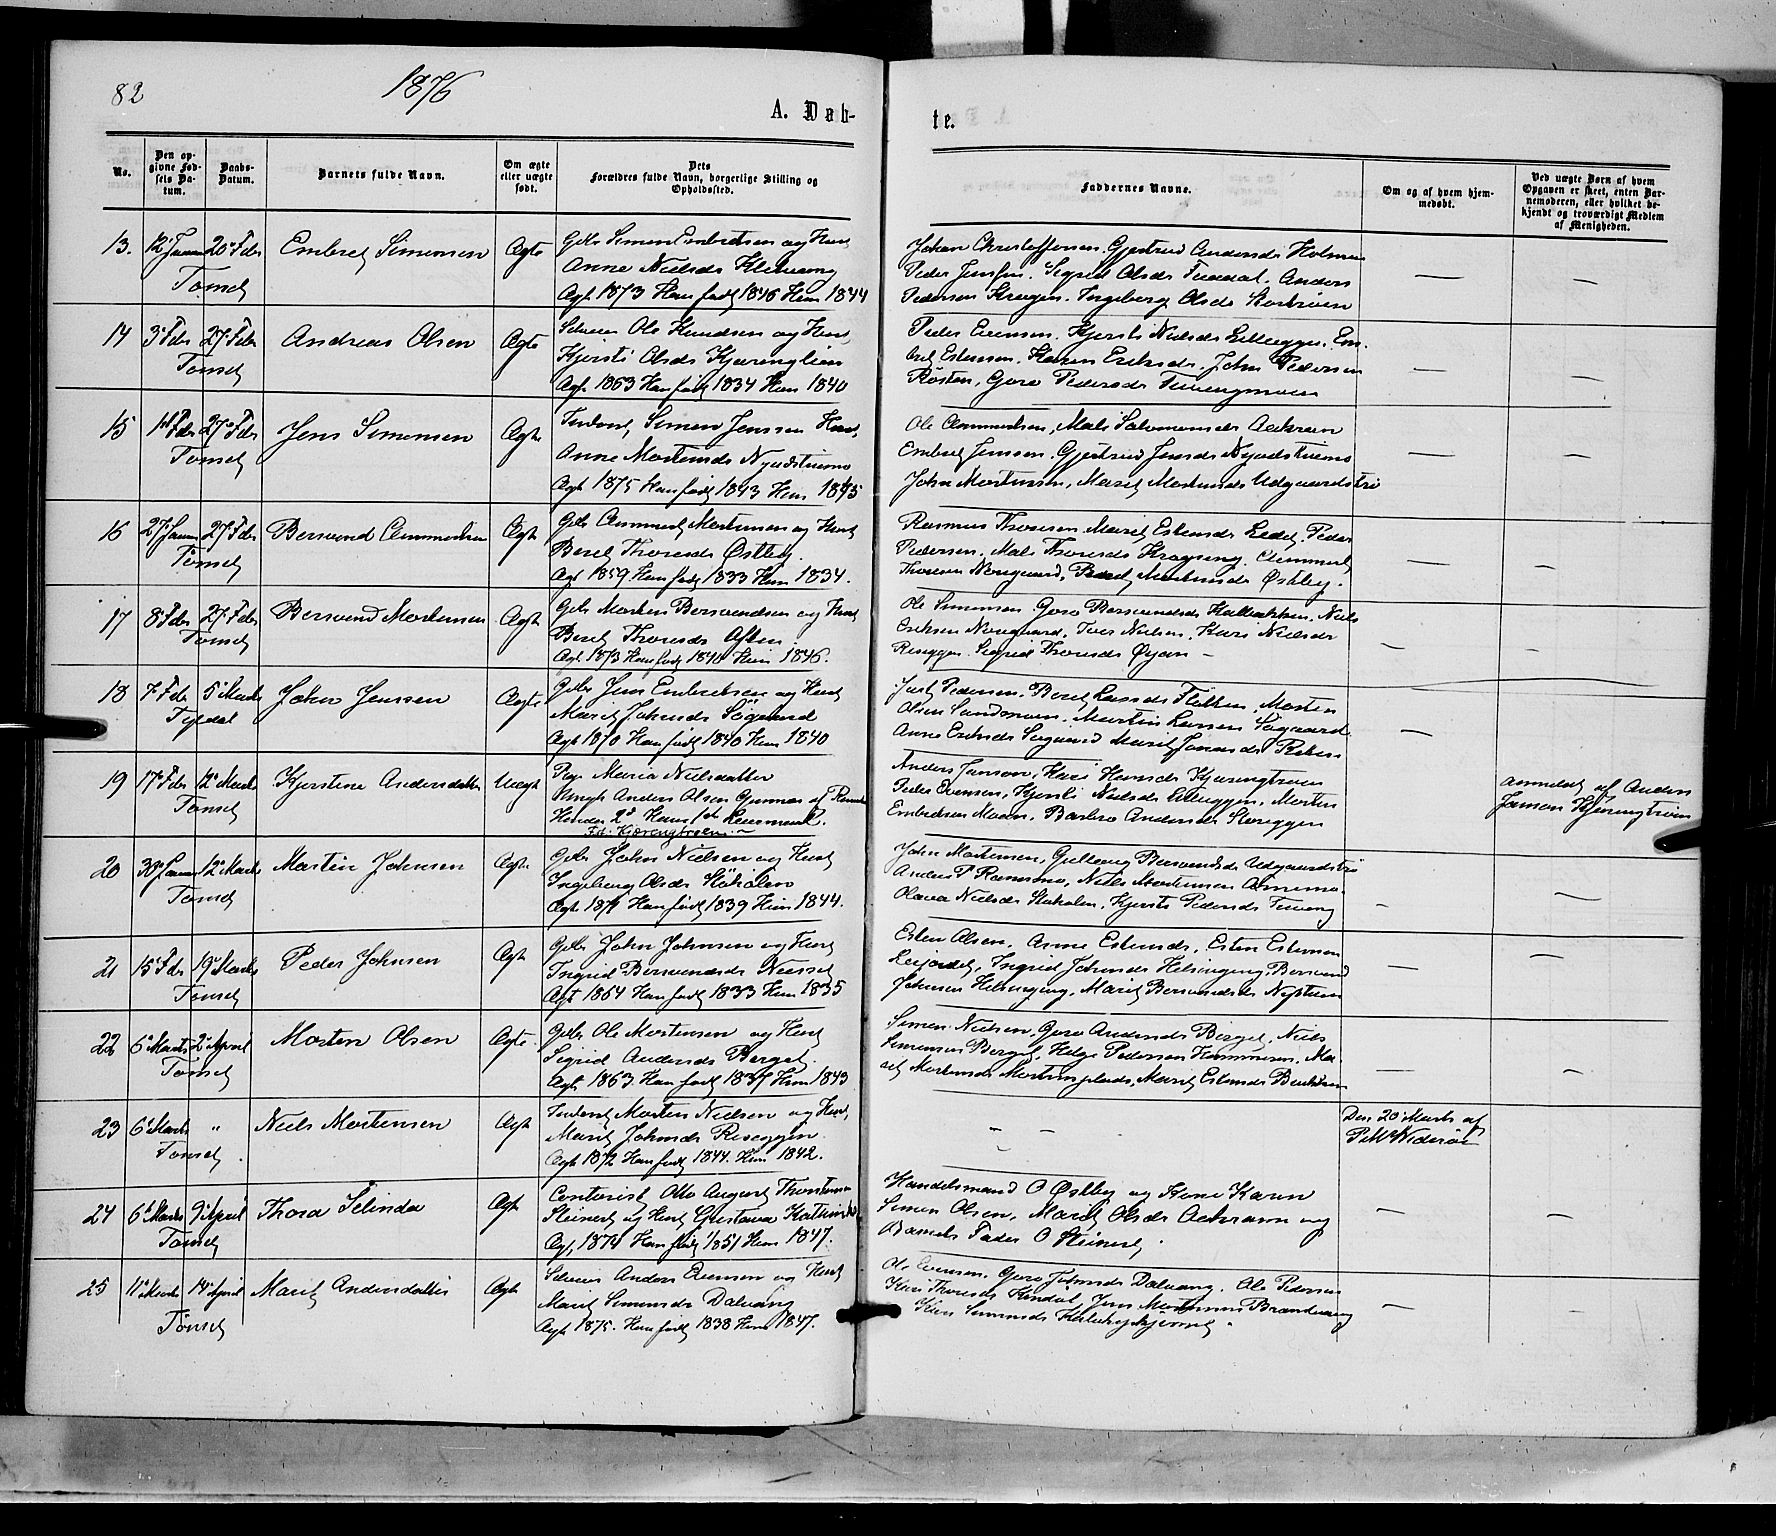 82
1876
A. Døb-
te.
No.
Den op-
givne Fød-
sels Da-
tum.
Daabs-
Datum.
Barnets fulde Navn.
Om ægte
eller uægte
født.
Dets
Forældres fulde Navn, borgerlige Stilling og
Opholdssted.
Faddernes Navne.
Om og af hvem hjem-
medøbt.
Ved uægte Børn af hvem
Opgaven er skeet, enten Bar-
nemoderen, eller hvilket be-
kjendt og troværdigt Medlem
af Menigheden.
13. 12 Januar 20 Febr Embret Simonsen Ægte Gbr Simon Embretsen og Hust
Tønset Anne Nielsdr
Ægt 1873 Han født 1846 Hun 1844
Johan Christoffersen. Gjertrud Andersdr Holmen
Peder Jensen. Sigrid Olsdr. Anders
Pedersen. Ingeborg Olsdr
14 3 Febr 27 Febr Andreas Olsen Ægte Ole Knudsen og Hust,
Tønset Kjersti Olsdr Kjærenglien
Ægt 1863 Han født 1834 Hun 1840
Peder Evensen. Kjersti Nielsdr Lilleeggen. Em-
bret Estensen. Karen Eriksdr. John Pedersen
Røsten, Goro Pedersdr
15 27 Febr Jens Simonsen Ægte Simon Jenssen Hust,
Tønset Anne Mortensdr
Ægt 1875 Han født 1843 Hun 1845
Ole Clemmetsen, Mali Salomonsdr Aakran
Embret Jenssen. Gjertrud Jensdr
John Mortensen, Marit Mortensdr Udgaardstrø
16 27 Januar 27 Febr Bersvend Clemmetsen Ægte Gbr Clemmet Mortensen og Hust
Tønset Beret Thoresdr Østby.
Ægt 1859 Han født 1833 Hun 1834.
Rasmus Thoresen. Marit Estensdr. Peder
Pedersen. Mali Thoresdr. Clemmet
Thoresen Norgaard, Beret Mortensdr Østby.
17 8 Febr 27 Febr Bersvend Mortensen Ægte Gbr Morten Bersvendsen og Hust
Tønset Beret Thoresdr
Ægt 1873 Han født 1840 Hun 1846.
Ole Simensen. Goro Bersvendsdr, Niels
Eriksen Norgaard, Iver Nielsen. Kari Nielsdr
Riseggen. Sigrid Thoresdr Øyan –
18 7 Febr 5 Marts John Jenssen Ægte Gbr Jens Embretsen og Hust
Tyldal Marit Johnsdr Søgaard
Ægt 1870 Han født 1840 Hun 1840
Pedersen. Beret Larsdr Flatten. Morten
Olsen Sandmoen. Martin Larsen Søgaard.
Anne Eriksdr Søgaard Marit Jonasdr
19 17 Febr 12 Marts Kjerstine Andersdatter Uægt Pige Maria Nielsdatter
Tønset Ungk Anders Olsen af
Hendes 2d Hans 1st Leiermaal.
Kjærengtrøen
Anders Janson, Kari Hansdr Kjærengtrøen
Peder Evensen, Kjersti Nielsdr Lilleeggen, Morten
Embretsen Moan, Barbro Andersdr Storeggen
Anmeldt af Anders
Jansen Kjærengtrøen
20 30 Januar 12 Marts Martin Johnsen Ægte Gbr John Nielsen og Hust
Tønset Ingeborg Olsdr Støholen
Ægt 1871 Han født 1839 Hun 1844.
John Mortensen, Bersvendsdr Udgaardstrø
Anders P Ramsmo, Niels Mortensen
Olava Nielsdr Støholen, Kjersti Pedersdr
21 15 Febr 19 Marts Peder Johnsen Ægt Gbr John Johnsen og Hust
Tønset Ingrid Bersvendsdr Neeset
Ægt 1864 Han født 1833 Hun 1835
Esten Olsen. Anne Estensdr. Esten Estensen
Ingrid Johnsdr Helsingeng. Bersvend
Johnsen Helsingeng, Marit Bersvendsdr Nystuen
22 6 Marts 2 April Morten Olsen Ægte Gbr Ole Mortensen og Hust
Tønset Sigrid Andersdr Berget.
Ægt 1863. Han født 1837 Hun 1843
Simen Nielsen, Goro Andersdr Berget, Niels
Simensen Berget, Helge Pedersen, Ma-
rit Mortensdr, Marit Estensdr
23 6 Marts „ Niels Mortensen Ægt Morten Nielsen og Hust,
Tønset Marit Johnsdr Riseggen.
Ægt 1872 Han født 1844. Hun 1842.
Den 20 Marts af
24 6 Marts 9 April Thora Selinda Ægt Contorist Otto August Thorstensen
Tønset Steinert og Hust Gustava
Ægt 1874 Han født 1851 Hun 1847.
Handelsmand O Østby og Kone Karen
Simen Olsen, Marit Olsdr Aakrann og
Barnets Fader O Steinert.
25 11 Marts 14 April Marit Andersdatter Ægt Anders Evensen og Hust
Tønset Marit Simensdr Dalvang
Ægt 1875. Han født 1838 Hun 1847.
Ole Evensen. Goro Johnsdr Dalvang. Ole Pedersen
Kari Thoresdr, Jens Mortensen Brandvang
Kari Simensdr